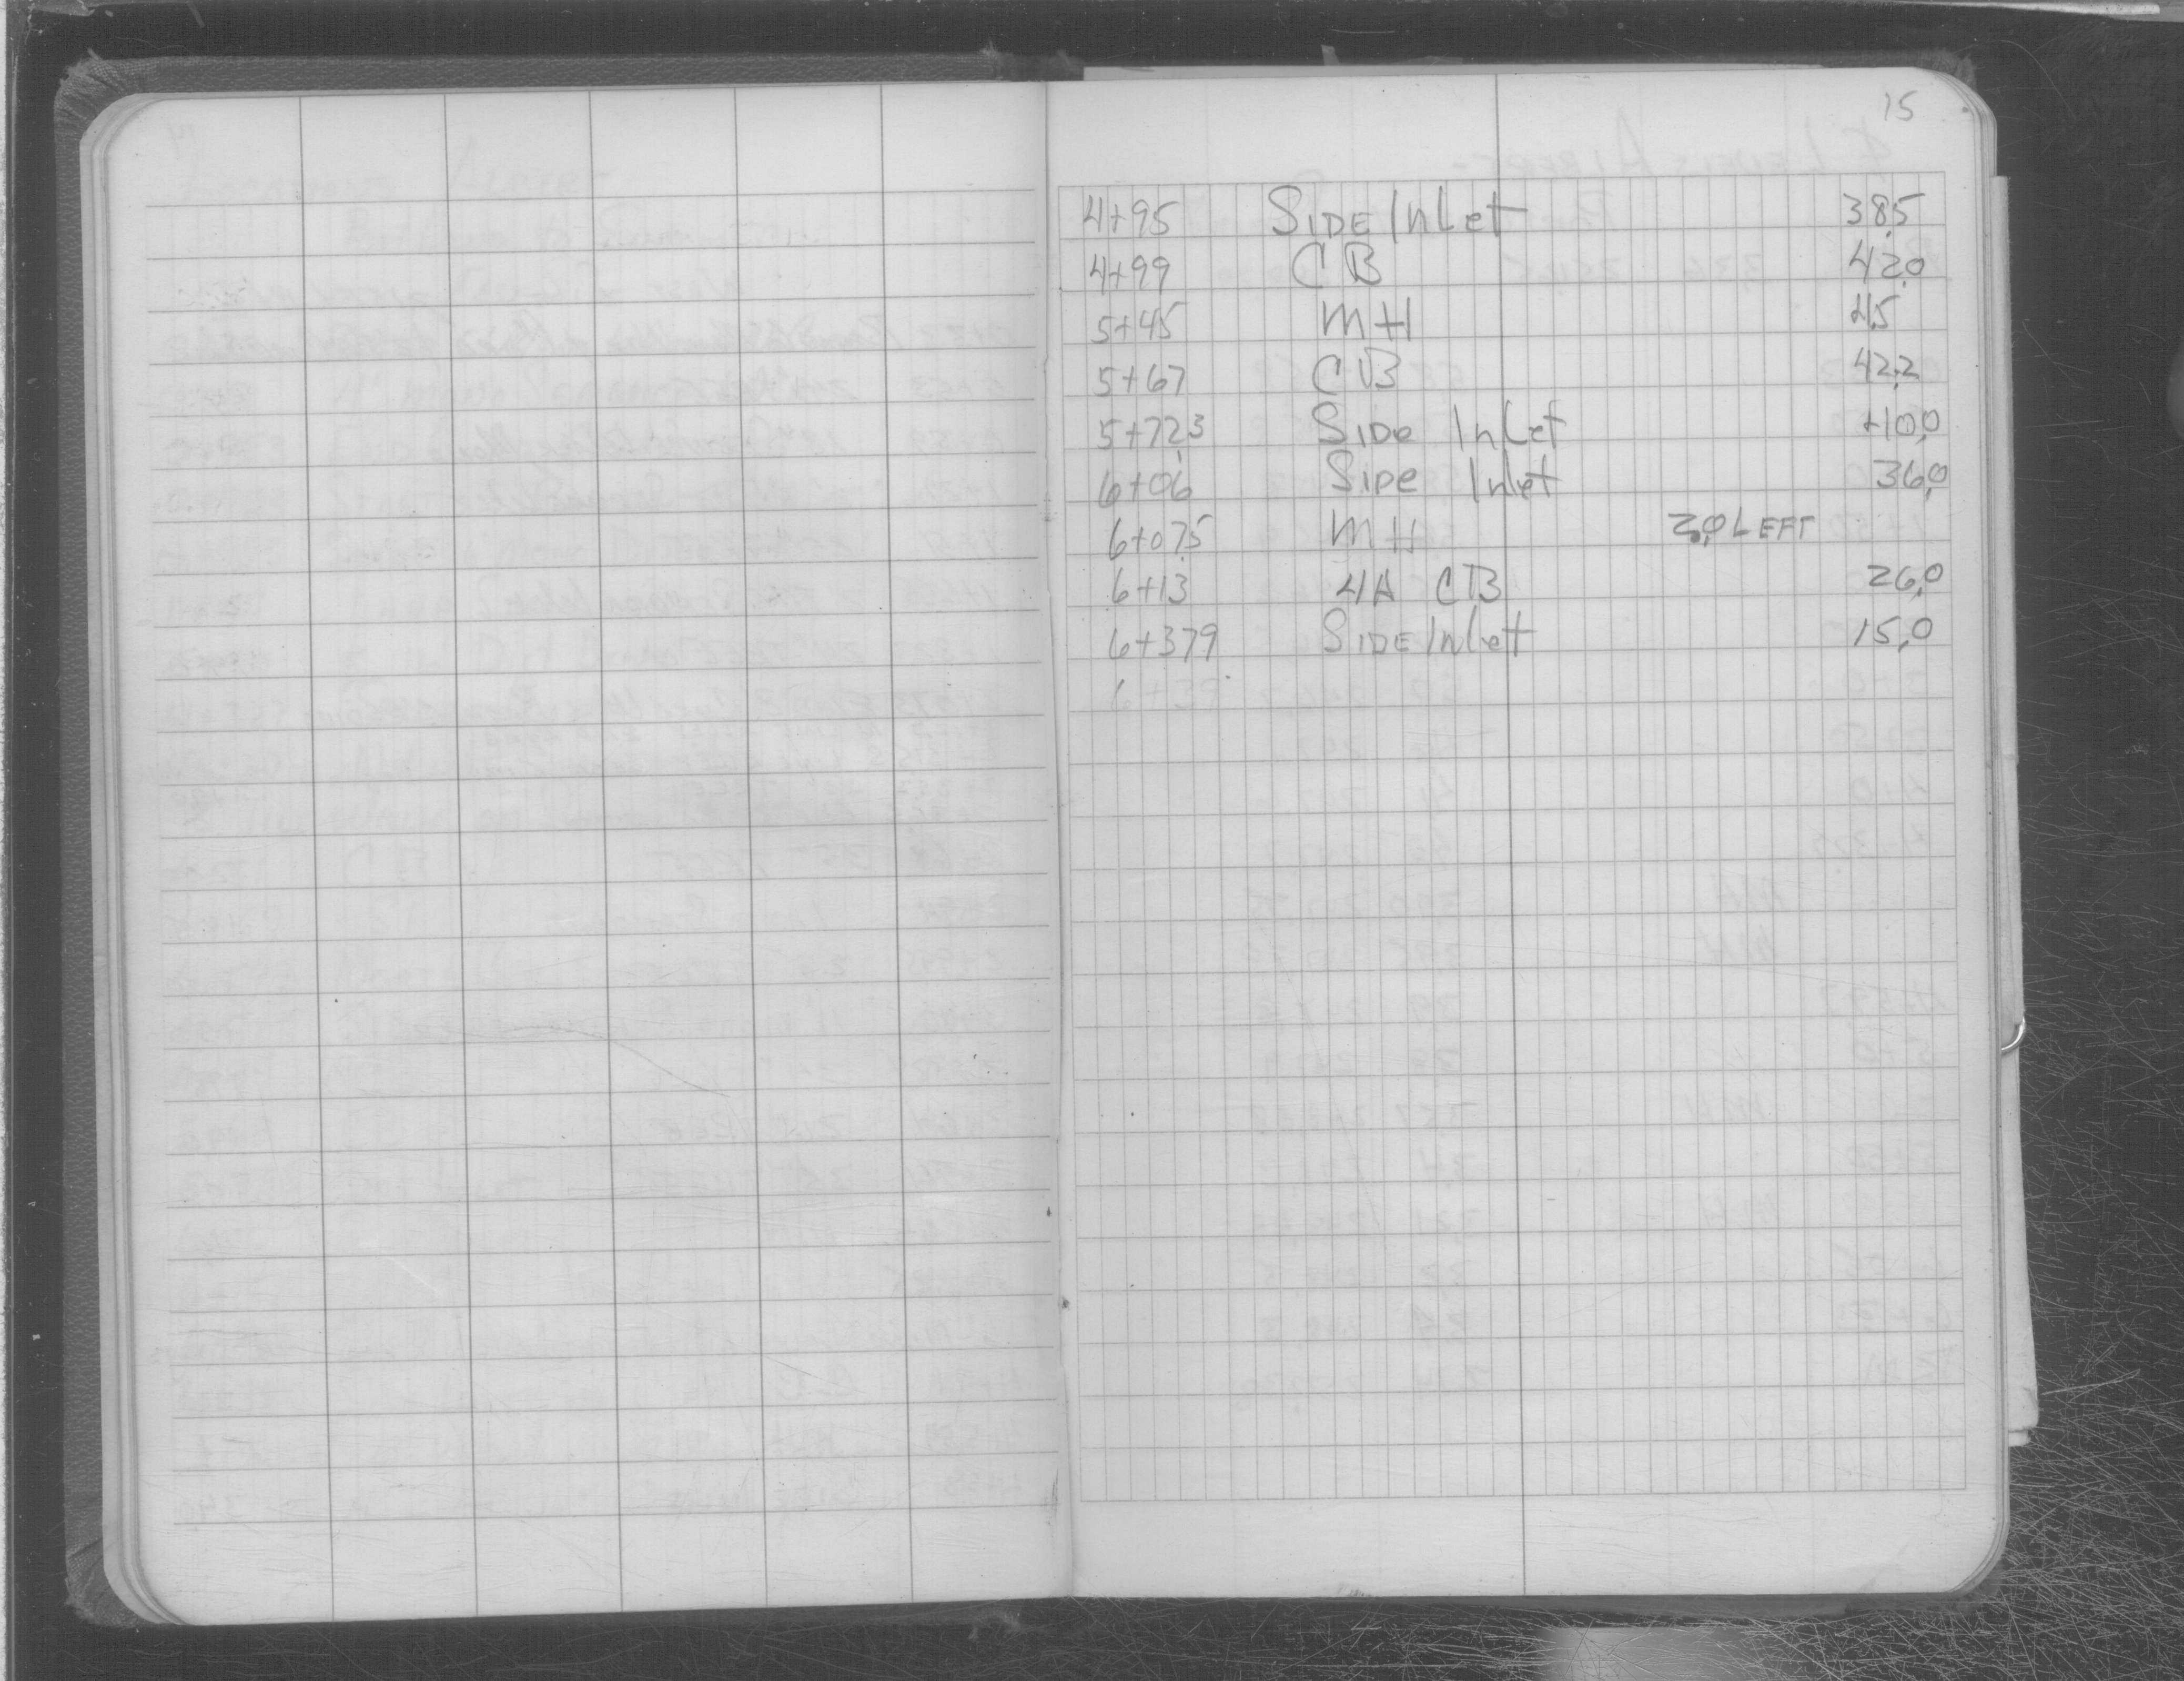 15
4+95 SIDE InLet 38.5
4+99 CB 42.0
5+45 MH 4.5
5+67 CB 42.2
5+72.3 SIDe InLet 40.0
6+06 SIDe Inlet 36.0
6+07.5 MH LEFT
6+13 4A CB 26.0
6+37.9 SIDE InLet 15.0
6+39